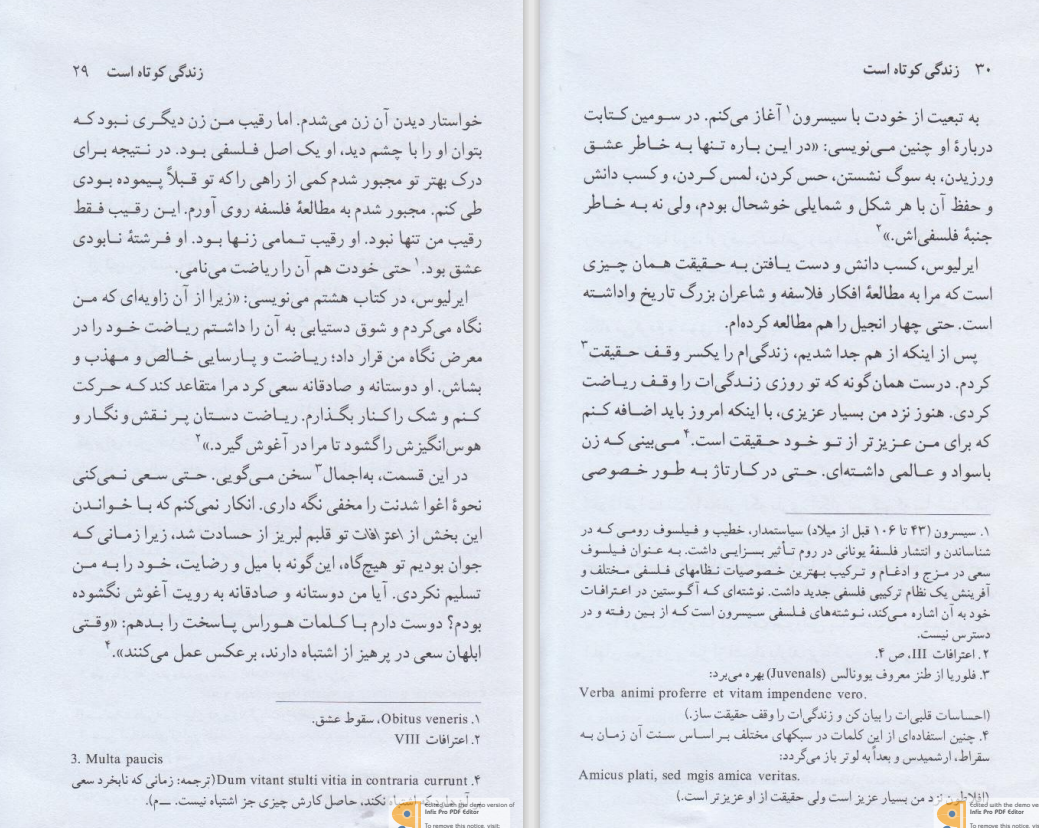 زندگی کوتاه است ۲۹
خواستار دیدن آن زن می‌شدم. اما رقیب من زن دیگری نبود که
بتوان او را با چشم دید، او یک اصل فلسفی بود. در نتیجه برای
درک بهتر تو مجبور شدم کمی از راهی را که تو قبلاً پیموده بودی
طی کنم. مجبور شدم به مطالعهٔ فلسفه روی آورم. این رقیب فقط
رقیب من تنها نبود. او رقیب تمامی زنها بود. او فرشتهٔ نابودی
عشق بود.۱ حتی خودت هم آن را ریاضت می‌نامی.
ایرلیوس، در کتاب هشتم می‌نویسی: «زیرا از آن زاویه‌ای که من
نگاه می‌کردم و شوق دستیابی به آن را داشتم ریاضت خود را در
معرض نگاه من قرار داد؛ ریاضت و پارسایی خالص و مهذب و
بشاش. او دوستانه و صادقانه سعی کرد مرا متقاعد کند که حرکت
کنم و شک را کنار بگذارم. ریاضت دستان پر نقش و نگار و
هوس‌انگیزش را گشود تا مرا در آغوش گیرد.»۲
در این قسمت، به‌اجمال۳ سخن می‌گویی. حتی سعی نمی‌کنی
نحوهٔ اغوا شدنت را مخفی نگه داری. انکار نمی‌کنم که با خواندن
این بخش از اعترافات تو قلبم لبریز از حسادت شد، زیرا زمانی که
جوان بودیم تو هیچ‌گاه، این‌گونه با میل و رضایت، خود را به من
تسلیم نکردی. آیا من دوستانه و صادقانه به رویت آغوش نگشوده
بودم؟ دوست دارم با کلمات هوراس پاسخت را بدهم: «وقتی
ابلهان سعی در پرهیز از اشتباه دارند، برعکس عمل می‌کنند».۴
۱. Obitus veneris، سقوط عشق.
۲. اعترافات VIII
3. Multa paucis
۴. Dum vitant stulti vitia in contraria currunt(ترجمه: زمانی که نابخرد سعی
نکند، حاصل کارش چیزی جز اشتباه نیست. ــم).
Edited with the demo version of
Infix Pro PDF Editor
To remove this notice, visit:
۳۰ زندگی کوتاه است
به تبعیت از خودت با سیسرون۱ آغاز می‌کنم. در سومین کتابت
دربارهٔ او چنین می‌نویسی: «در این باره تنها به خاطر عشق
ورزیدن، به سوگ نشستن، حس کردن، لمس کردن، و کسب دانش
و حفظ آن با هر شکل و شمایلی خوشحال بودم، ولی نه به خاطر
جنبهٔ فلسفی‌اش.»۲
ایرلیوس، کسب دانش و دست یافتن به حقیقت همان چیزی
است که مرا به مطالعهٔ افکار فلاسفه و شاعران بزرگ تاریخ واداشته
است. حتی چهار انجیل را هم مطالعه کرده‌ام.
پس از اینکه از هم جدا شدیم، زندگی‌ام را یکسر وقف حقیقت۳
کردم. درست همان‌گونه که تو روزی زندگی‌ات را وقف ریاضت
کردی. هنوز نزد من بسیار عزیزی، با اینکه امروز باید اضافه کنم
که برای من عزیزتر از تو خود حقیقت است.۴ می‌بینی که زن
باسواد و عالمی داشته‌ای. حتی در کارتاژ به طور خصوصی
۱. سیسرون (۴۳ تا ۱۰۶ قبل از میلاد) سیاستمدار، خطیب و فیلسوف رومی که در
شناساندن و انتشار فلسفهٔ یونانی در روم تأثیر بسزایی داشت. به عنوان فیلسوف
سعی در مزج و ادغام و ترکیب بهترین خصوصیات نظامهای فلسفی مختلف و
آفرینش یک نظام ترکیبی فلسفی جدید داشت. نوشته‌ای که آگوستین در اعترافات
خود به آن اشاره می‌کند، نوشته‌های فلسفی سیسرون است که از بین رفته و در
دسترس نیست.
۲. اعترافات III، ص ۴.
۳. فلوریا از طنز معروف یوونالس (Juvenals) بهره می‌برد:
Verba animi proferre et vitam impendene vero.
(احساسات قلبی‌ات را بیان کن و زندگی‌ات را وقف حقیقت ساز.)
۴. چنین استفاده‌ای از این کلمات در سبکهای مختلف بر اساس سنت آن زمان به
سقراط، ارشمیدس و بعداً به لوتر باز می‌گردد:
Amicus plati, sed mgis amica veritas.
(افلاطون نزد من بسیار عزیز است ولی حقیقت از او عزیزتر است.)
Edited with the demo ve
Infix Pro PDF Editor
To remove this notice, visit: